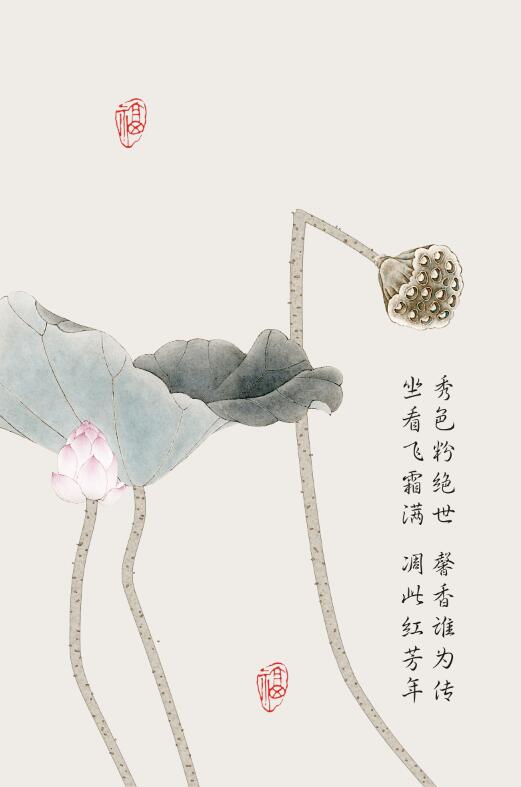 秀色粉绝世 馨香谁为传
坐看飞霜满 凋此红芳年
福
福